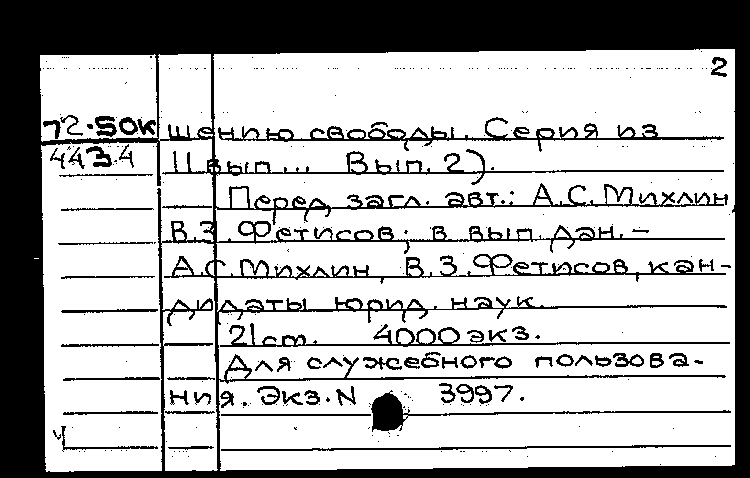 2
72.SOK шению свободы. Серия из
4434 11 вып... Вып. 2).
Перед загл. авт.: А.С.Михлин,
В.З.Фетисов; в вып. дан. –
А.С.Михлин, В.З.Фетисов, кан-
дидаты юрид. наук.
21 cm. 4000 экз.
Для служебного пользова-
ния. Экз. N 3997.